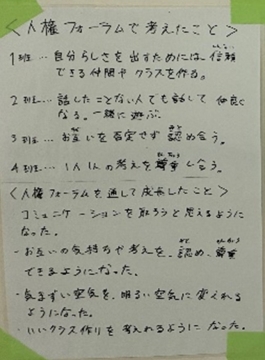 ＜人権フォーラムで考えたこと＞
1班…自分らしさを出すためには、信頼
できる仲間やクラスを作る。
2班…話したことない人でも話して仲良く
なる。一緒に遊ぶ。
3班…お互いを否定せず認め合う。
4班…1人1人の考えを尊重し合う。
＜人権フォーラムを通して成長したこと＞
コミュニケーションを取ろうと思えるように
なった。
・お互いの気持ちや考えを、認め、尊重
できるようになった。
・気まずい空気を、明るい空気に変えれる
ようになった。
・いいクラス作りを考えれるようになった。